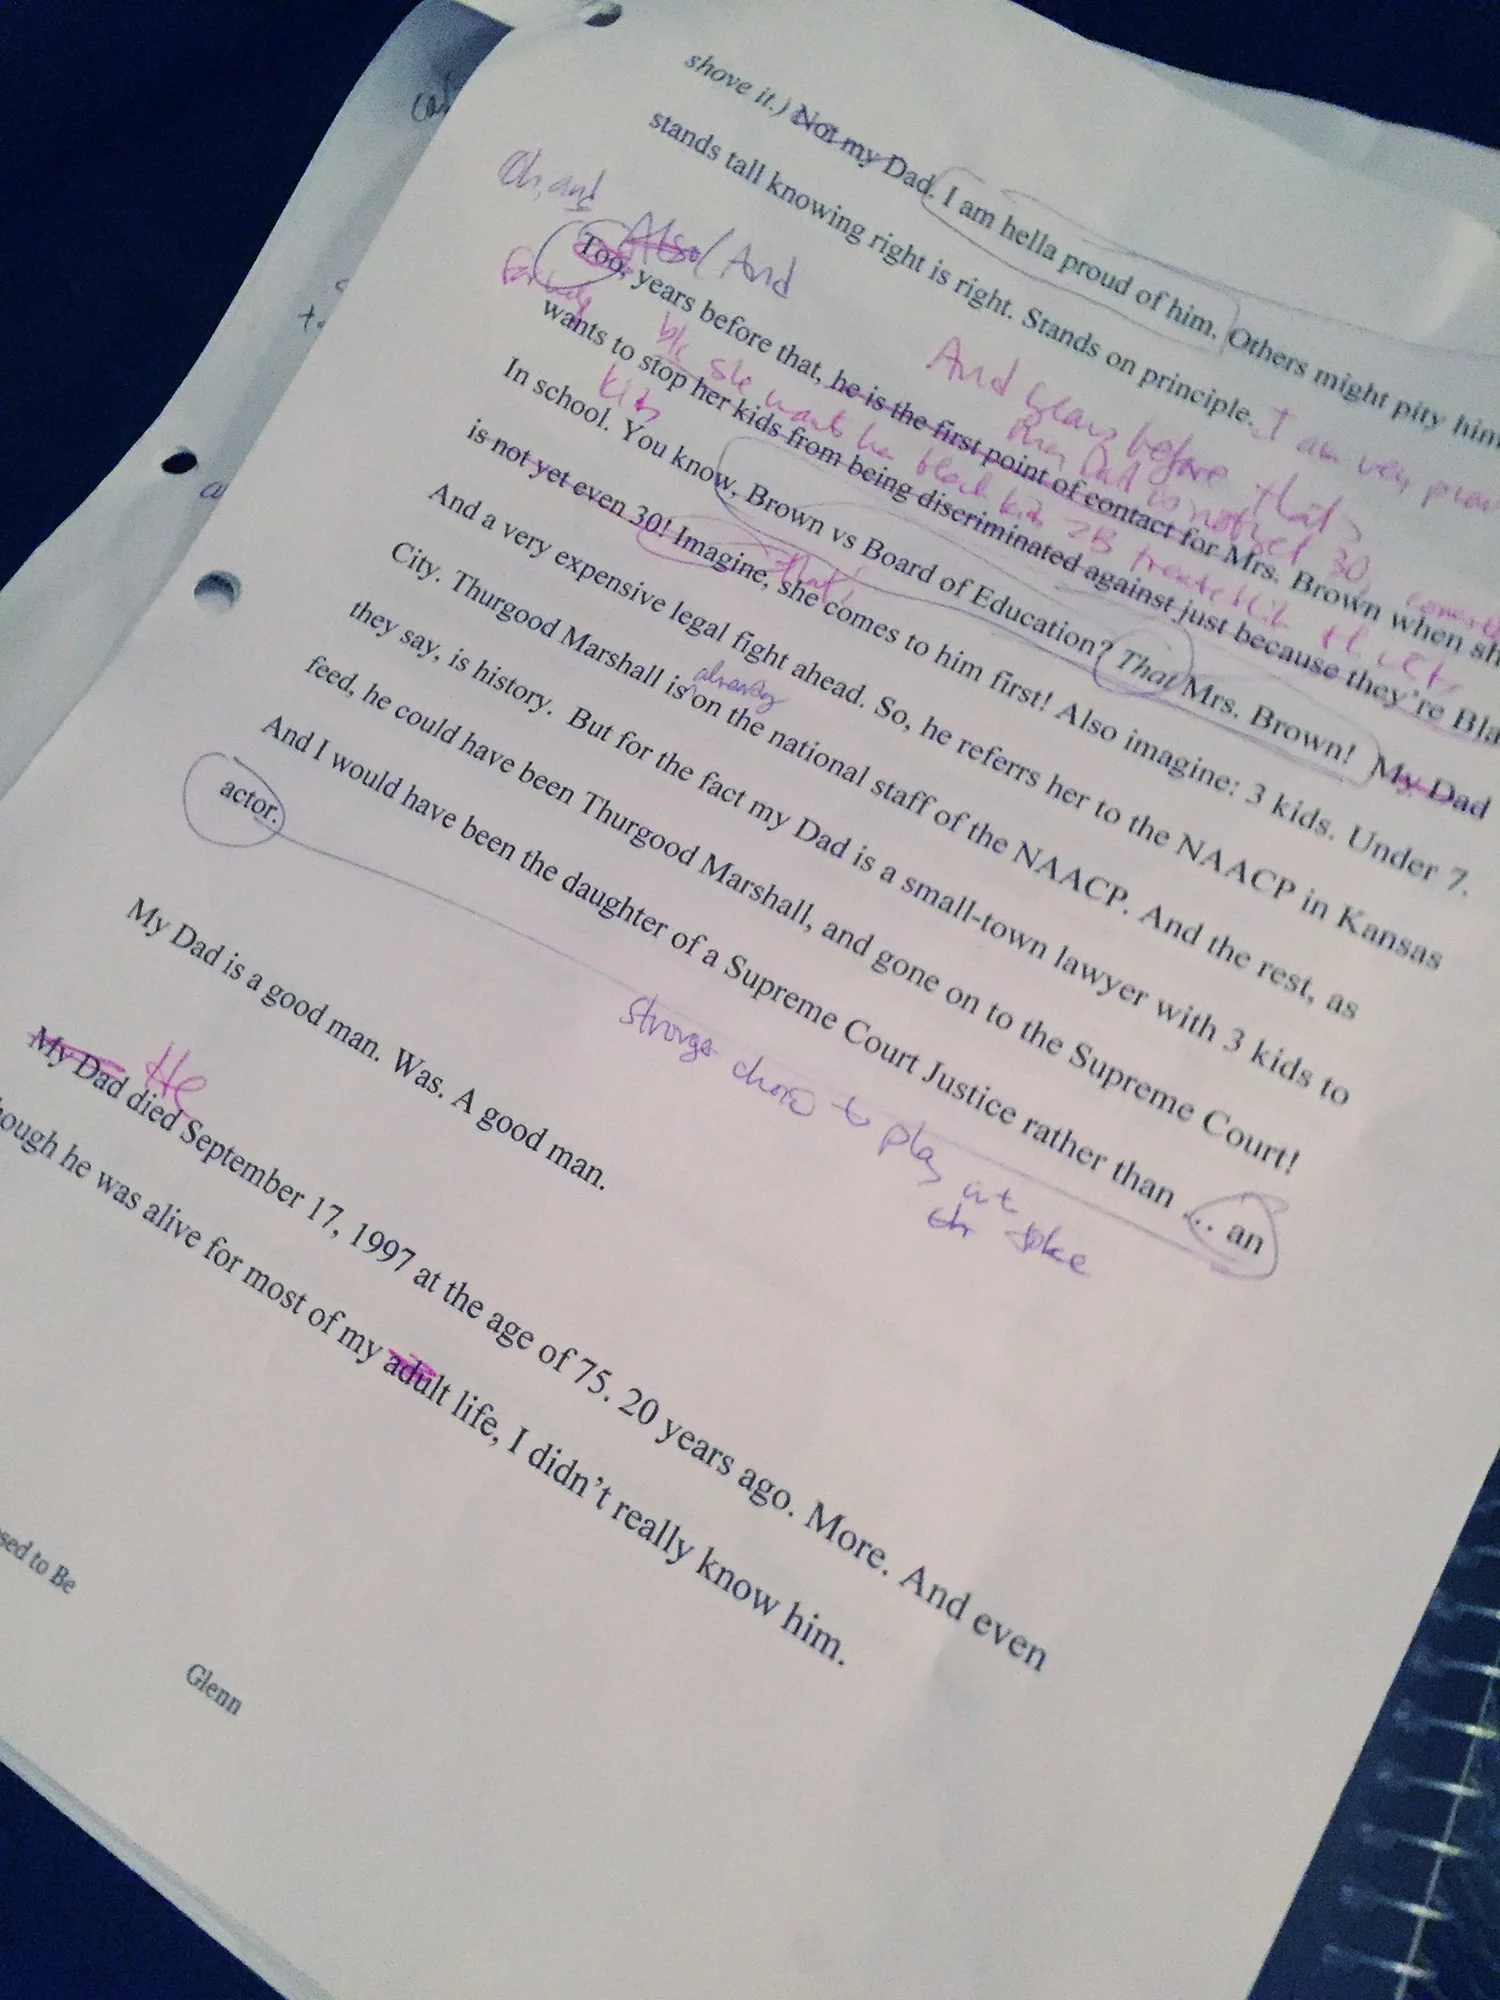 shove it.) Not my Dad. I am hella proud of him. Others might pity him
stands tall knowing right is right. Stands on principle. I am very
Oh, and
Also/And
Too, years before that, he is the first point of contact for Mrs. Brown when
And years before that,
Dad is not yet 30,
wants to stop her kids from being discriminated against just because they're
b/c she wants her black kids 2B treated
kids
In school. You know, Brown vs Board of Education? That Mrs. Brown! My Dad
is not yet even 30! Imagine, she comes to him first! Also imagine: 3 kids. Under 7.
that!
And a very expensive legal fight ahead. So, he referrs her to the NAACP in Kansas
City. Thurgood Marshall is on the national staff of the NAACP. And the rest, as
already
they say, is history. But for the fact my Dad is a small-town lawyer with 3 kids to
feed, he could have been Thurgood Marshall, and gone on to the Supreme Court!
And I would have been the daughter of a Supreme Court Justice rather than ... an
actor.
strange choice to play at
the joke
My Dad is a good man. Was. A good man.
He
My Dad died September 17, 1997 at the age of 75. 20 years ago. More. And even
though he was alive for most of my adult life, I didn't really know him.
to Be
Glenn